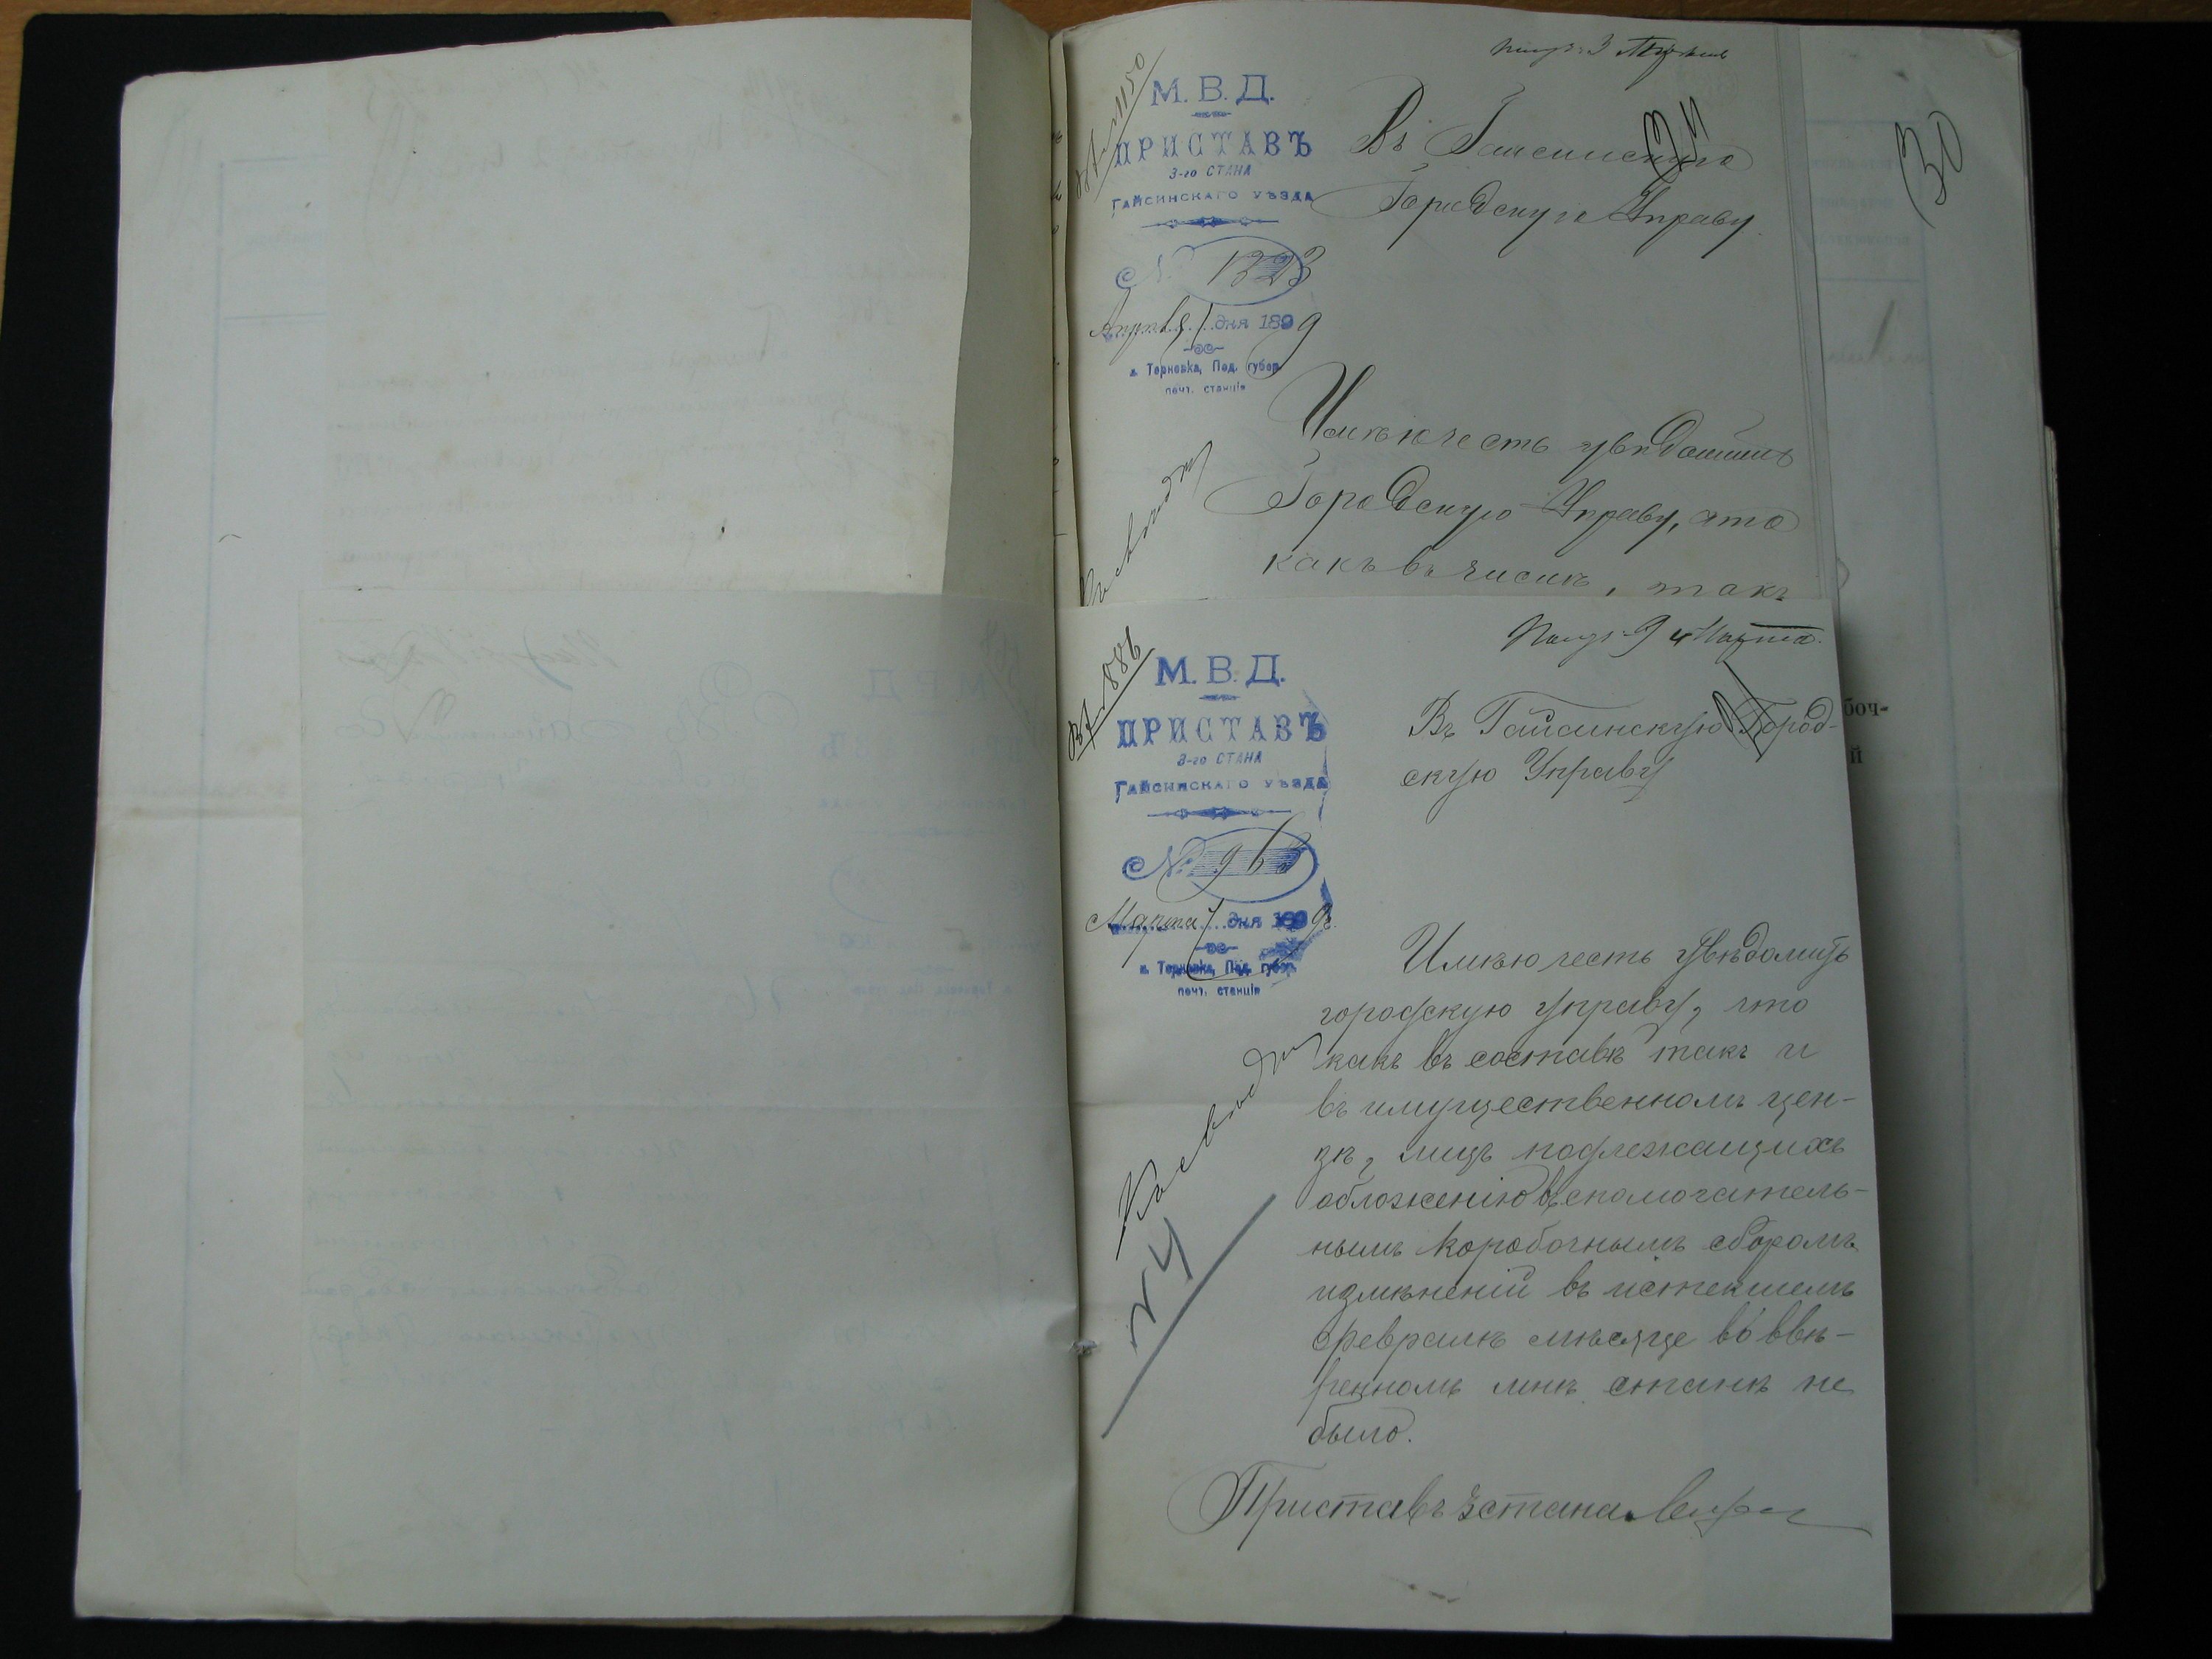 3
№ 1150
М. В. Д.
ПРИСТАВЪ
3-го СТАНА
ГАЙСИНСКАГО УѢЗДА
№ 1323
Апрѣля 1 дня 1899
м. Терновка, Под. губер.
почт. станція
Въ Гайсинскую
Городскую Управу.
30
Имѣю честь увѣдомить
Городскую Управу, что
какъ въ числѣ, такъ
Получ. 9 Марта.
вх 886
М. В. Д.
ПРИСТАВЪ
3-го СТАНА
ГАЙСИНСКАГО УѢЗДА
№ 963
Марта 7 дня 1899
м. Терновка, Под. губер.
почт. станція
Въ Гайсинскую Город-
скую Управу
Имѣю честь увѣдомить
городскую управу, что
какъ въ составѣ такъ и
въ имущественномъ цен-
зѣ, лицъ подлежащихъ
обложенію вспомогатель-
нымъ коробочнымъ сборомъ
измѣненій въ истекшемъ
февралѣ мѣсяце во ввѣ-
ренномъ мнѣ станѣ не
было.
Приставъ 3 стана
боч-
й